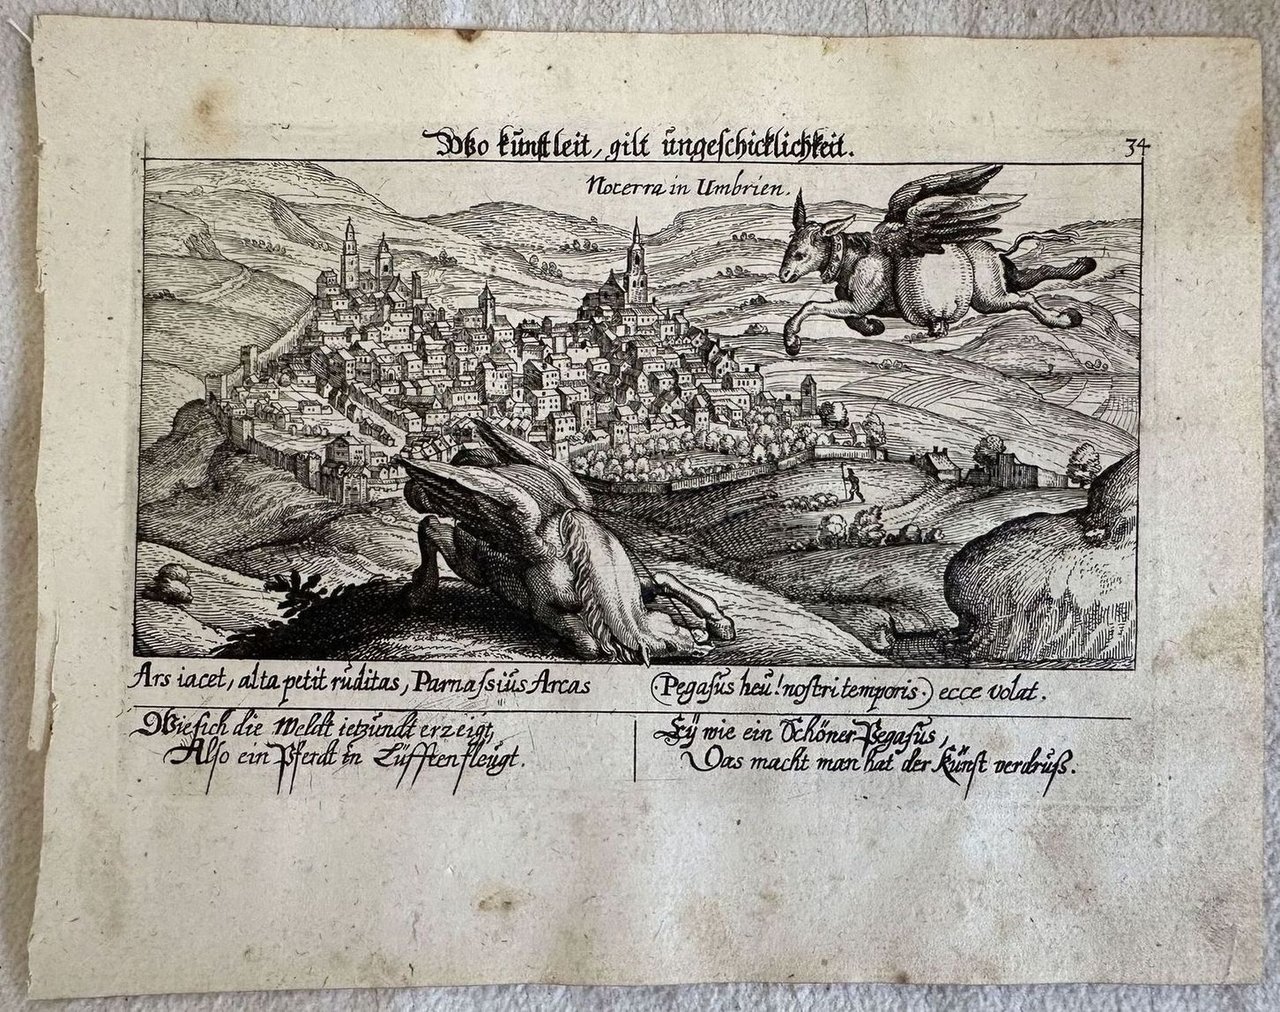 Wo kunst leit, gilt ungeschicklichkeit.
34
Nocerra in Umbrien.
Ars iacet, alta petit ruditas, Parnassius Arcas
(Pegasus heu! nostri temporis.) ecce volat.
Wie sich die Weldt ietzundt erzeigt,
Also ein Pferdt in Lüfften fleugt.
Eÿ wie ein Schöner Pegasus,
Das macht man hat der Künst verdruß.